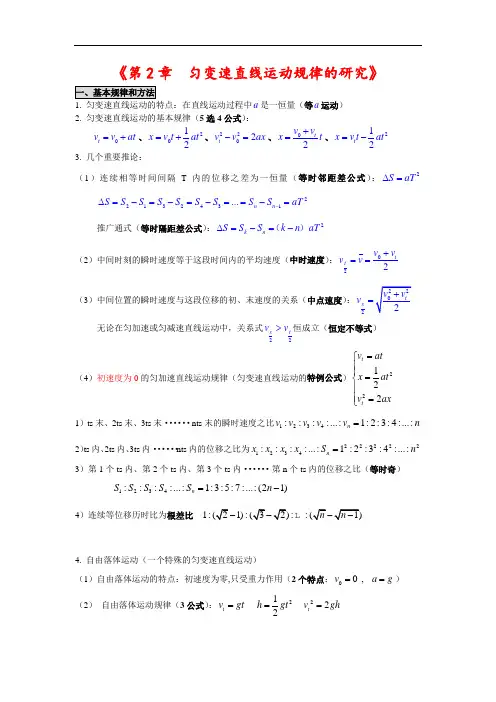 《第2章 匀变速直线运动规律的研究》
一、基本规律和方法
1. 匀变速直线运动的特点：在直线运动过程中a是一恒量（等a运动）
2. 匀变速直线运动的基本规律（5选4公式）：
v_t = v_0 + at 、 x = v_0t + 1/2 at² 、 v_t² − v_0² = 2ax 、 x = (v_0 + v_t)/2 t 、 x = v_t t − 1/2 at²
3. 几个重要推论：
（1）连续相等时间间隔 T 内的位移之差为一恒量（等时邻距差公式）：ΔS = aT²
ΔS = S_2 − S_1 = S_3 − S_2 = S_4 − S_3 = ... = S_n − S_{n−1} = aT²
推广通式（等时隔距差公式）：ΔS = S_k − S_n =（k − n）aT²
（2）中间时刻的瞬时速度等于这段时间内的平均速度（中时速度）：v_{t/2} = v̄ = (v_0 + v_t)/2
（3）中间位置的瞬时速度与这段位移的初、末速度的关系（中点速度）：v_{x/2} = √((v_0² + v_t²)/2)
无论在匀加速或匀减速直线运动中，关系式 v_{x/2} > v_{t/2} 恒成立（恒定不等式）
（4）初速度为0的匀加速直线运动规律（匀变速直线运动的特例公式）{ v_t = at
x = 1/2 at²
v_t² = 2ax
1）ts末、2ts末、3ts末······nts末的瞬时速度之比 v_1 : v_2 : v_3 : v_4 : ... : v_n = 1 : 2 : 3 : 4 : ... : n
2）ts内、2ts内、3ts内······nts内的位移之比为 x_1 : x_2 : x_3 : x_4 : ... : S_n = 1² : 2² : 3² : 4² : ... : n²
3）第1个ts内、第2个ts内、第3个ts内······第n个ts内的位移之比（等时奇）
S_1 : S_2 : S_3 : S_4 : ... : S_n = 1 : 3 : 5 : 7 : ... : (2n − 1)
4）连续等位移历时比为根差比 1 : (√2 − 1) : (√3 − √2) : L : (√n − √(n − 1))
4. 自由落体运动（一个特殊的匀变速直线运动）
（1）自由落体运动的特点：初速度为零,只受重力作用（2个特点：v_0 = 0 , a = g ）
（2） 自由落体运动规律（3公式）：v_t = gt h = 1/2 gt² v_t² = 2gh